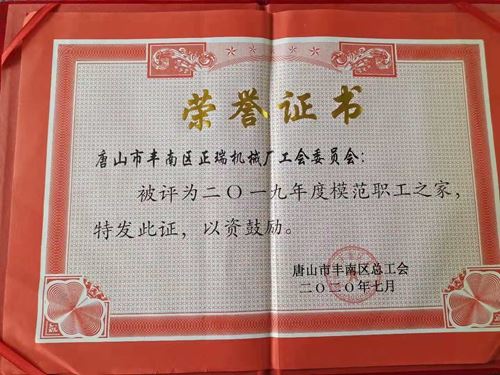 荣誉证书
唐山市丰南区正瑞机械厂工会委员会：
被评为二〇一九年度模范职工之家，
特发此证，以资鼓励。
唐山市丰南区总工会
二〇二〇年七月